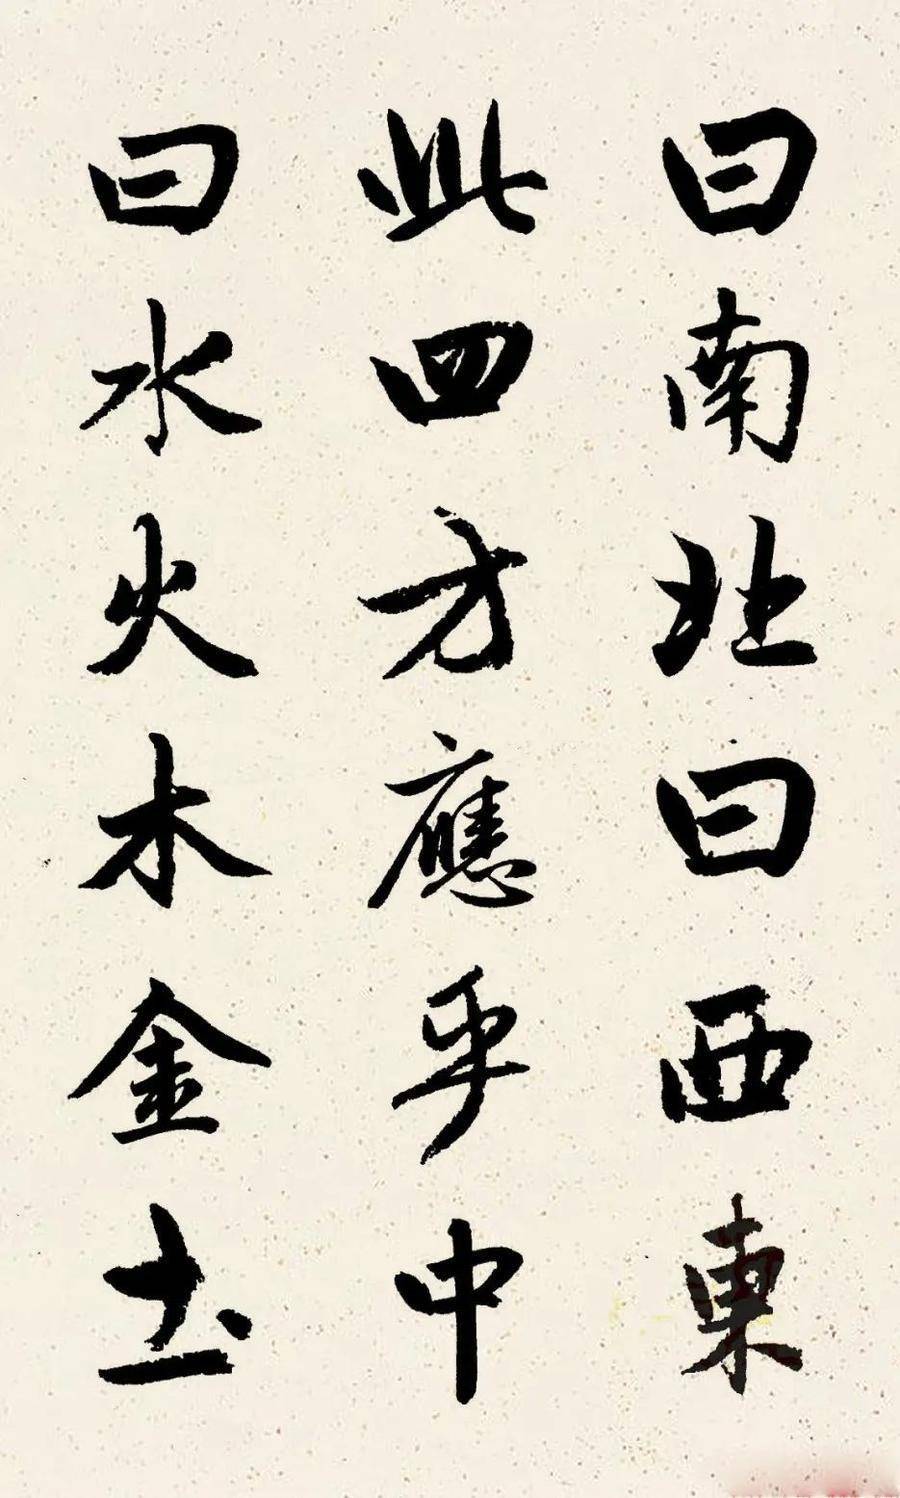 曰南北曰西東
此四方應乎中
曰水火木金土